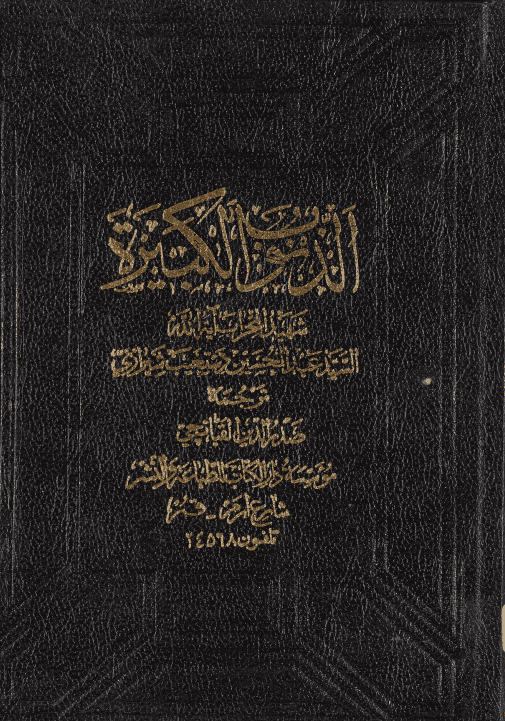 الذنوب الكبيرة
شهيد المحراب آية الله
السيد عبد الحسين دستغيب شيرازي
ترجمة
صدر الدين القبانچي
مؤسسة دار الكتاب للطباعة والنشر
شارع ارم - قم
تلفون ٢٤٥٦٨